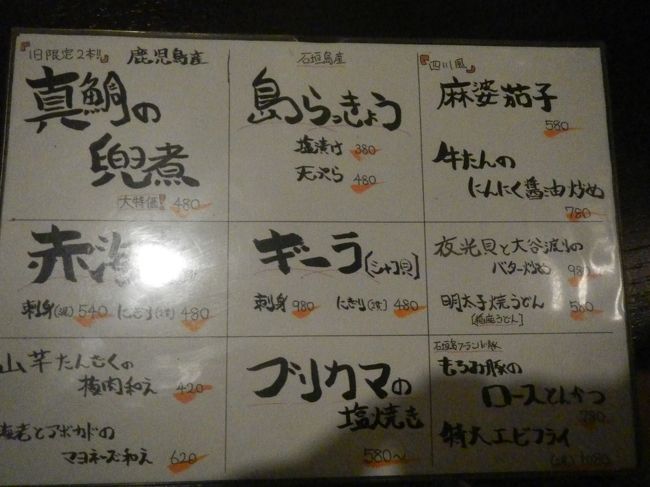 『1日限定2本!!』 鹿児島産
真鯛の
兜煮
大特価! 480
石垣島産
島らっきょう
塩漬け 380
天ぷら 480
『四川風』
麻婆茄子
580
牛たんの
にんにく醤油炒め
780
赤海
刺身 540 にぎり 480
ギーラ(シャコ貝)
刺身 980 にぎり 480
夜光貝と大谷渡りの
バター炒め 980
明太子焼うどん 580
[稲庭うどん]
山芋たんざくの
梅肉和え 420
海老とアボカドの
マヨネーズ和え 620
ブリカマの
塩焼き
580〜
石垣島ブランド豚
もろみ豚の
ロースとんかつ
780
特大エビフライ